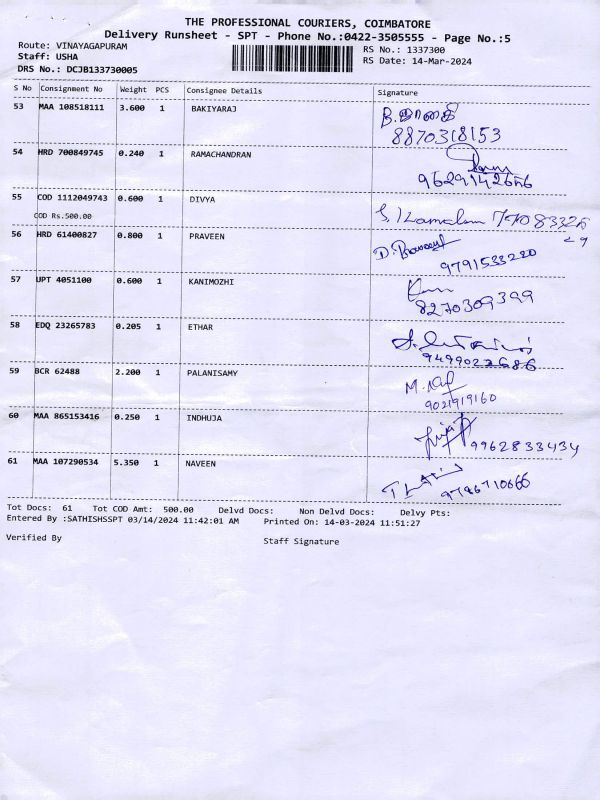 THE PROFESSIONAL COURIERS, COIMBATORE
Delivery Runsheet - SPT - Phone No.:0422-3505555 - Page No.:5
Route: VINAYAGAPURAM RS No.: 1337300
Staff: USHA RS Date: 14-Mar-2024
DRS No.: DCJB133730005
S No Consignment No Weight PCS Consignee Details Signature
53 MAA 108518111 3.600 1 BAKIYARAJ
8870318153
54 HRD 700849745 0.240 1 RAMACHANDRAN
9629142656
55 COD 1112049743 0.600 1 DIVYA
COD Rs.500.00
56 HRD 61400827 0.800 1 PRAVEEN
9791533220
57 UPT 4051100 0.600 1 KANIMOZHI
8270309399
58 EDQ 23265783 0.205 1 ETHAR
59 BCR 62488 2.200 1 PALANISAMY
9021919160
60 MAA 865153416 0.250 1 INDHUJA
9962833434
61 MAA 107290534 5.350 1 NAVEEN
Tot Docs: 61 Tot COD Amt: 500.00 Delvd Docs: Non Delvd Docs: Delvy Pts:
Entered By :SATHISHSSPT 03/14/2024 11:42:01 AM Printed On: 14-03-2024 11:51:27
Verified By Staff Signature